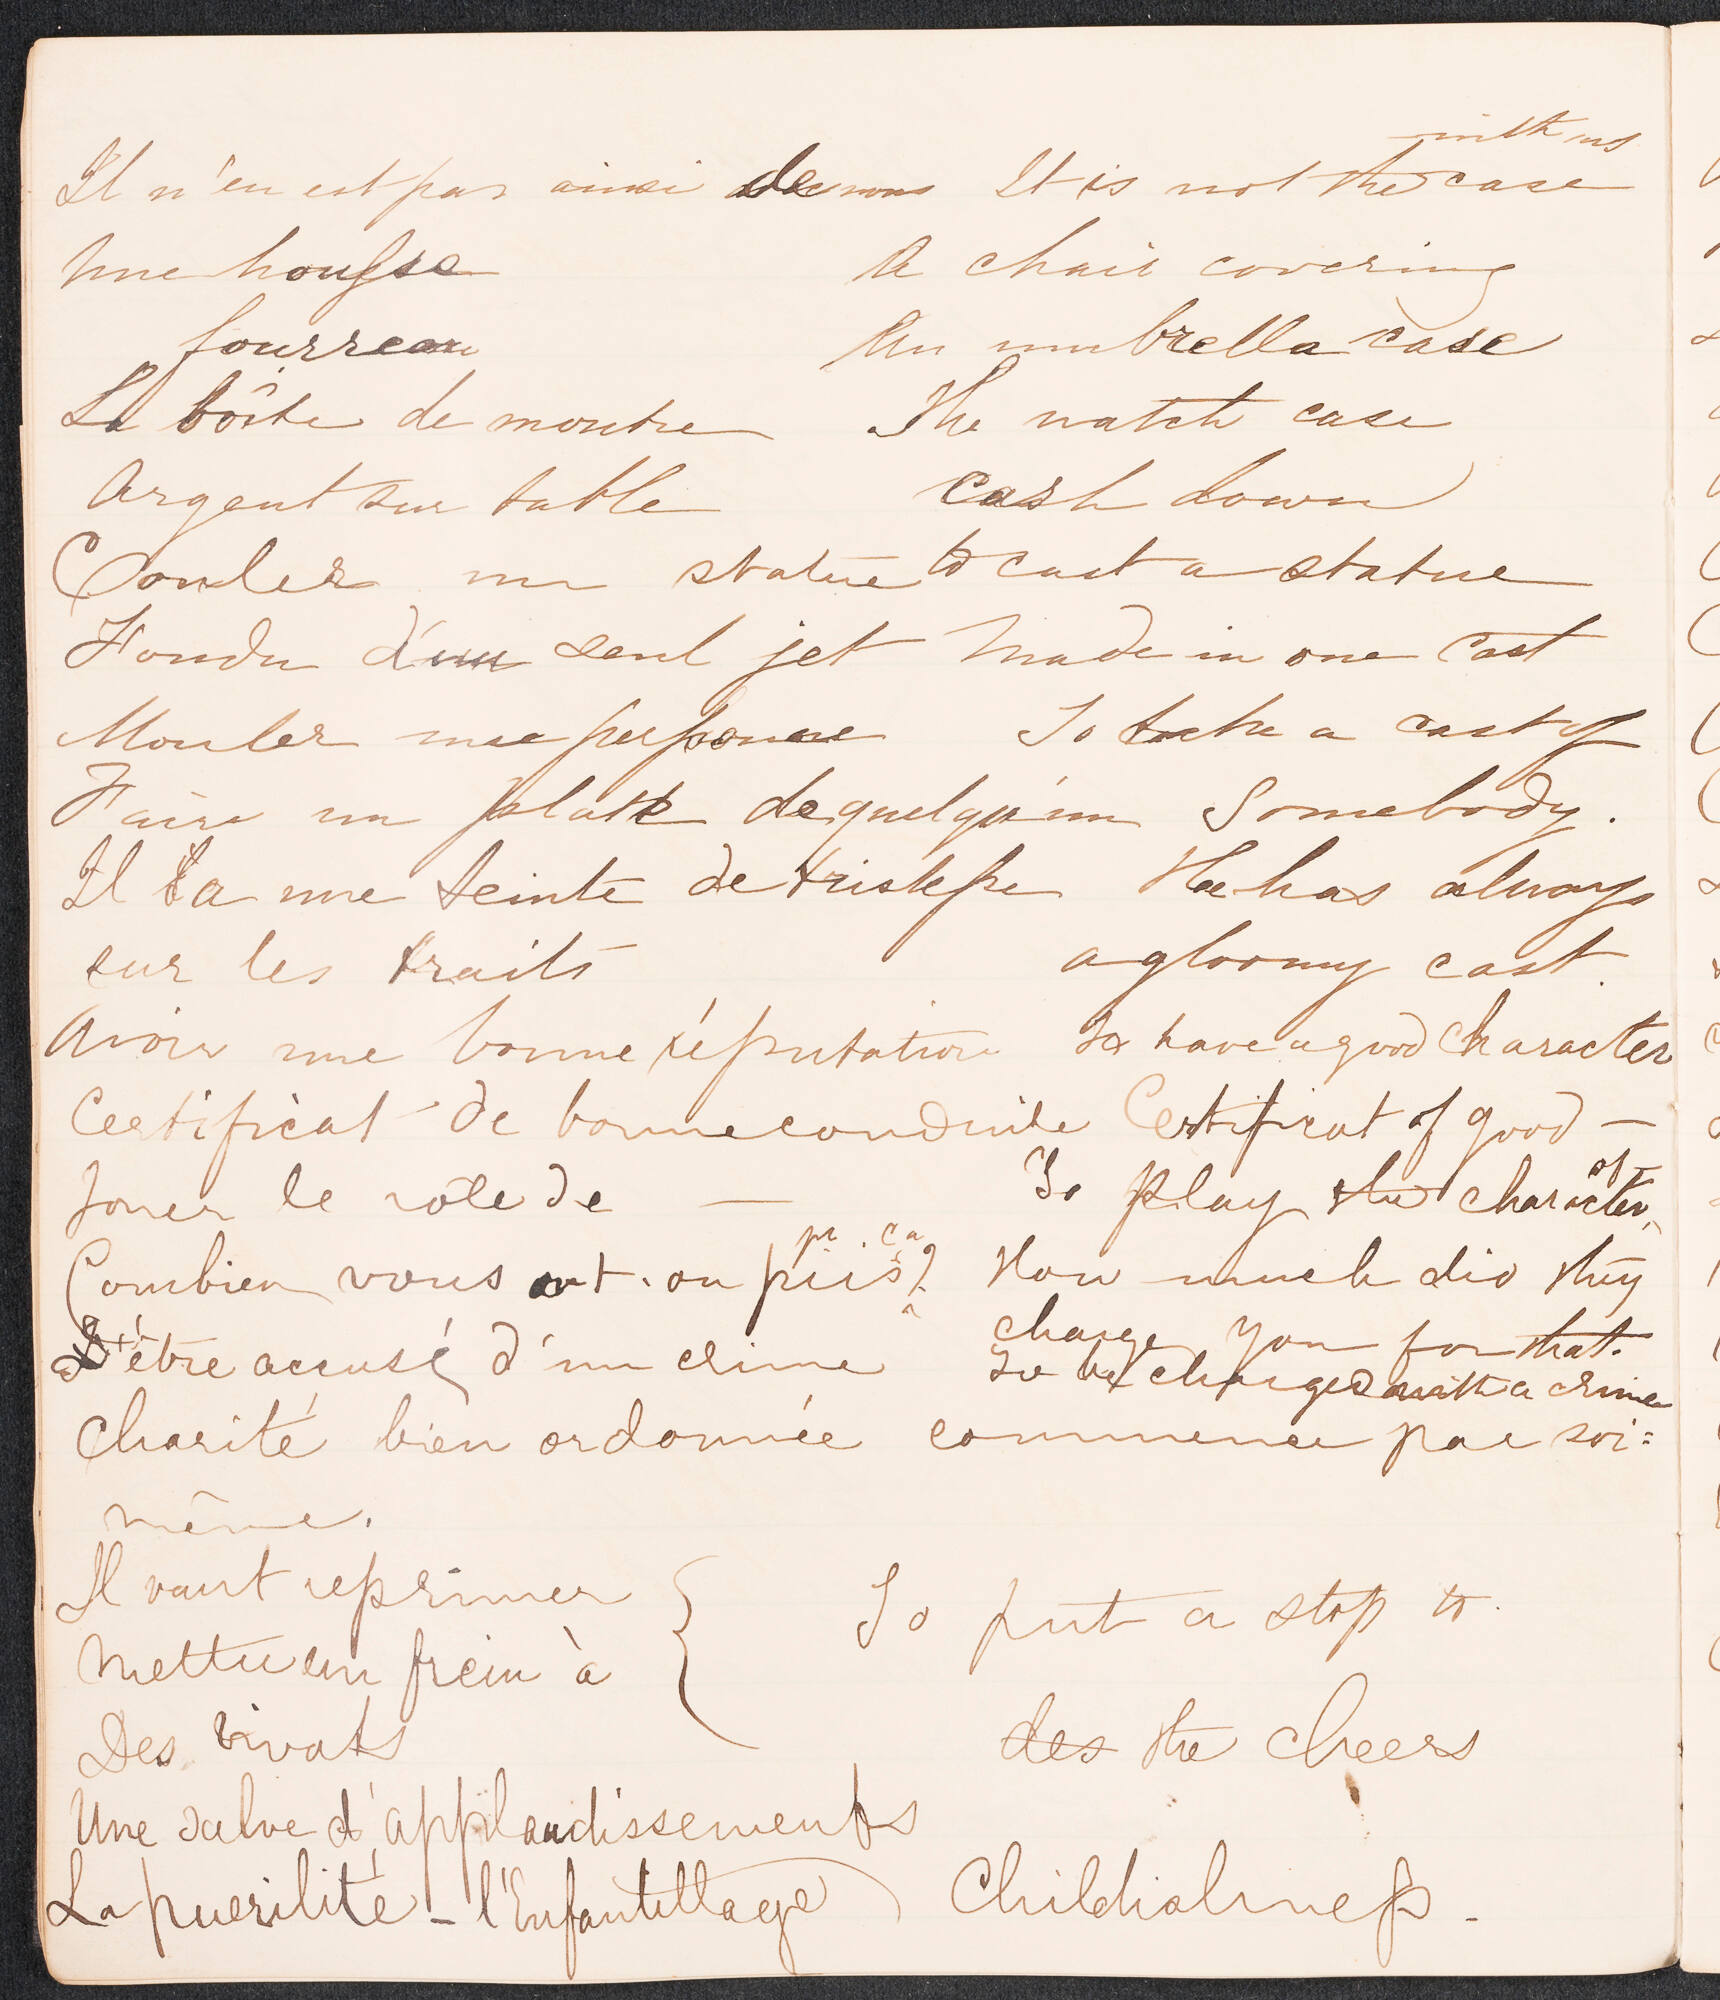 with us
Il n'en est pas ainsi de nous It is not the case
Une housse A chair covering
fourreau An umbrella case
La boîte de montre The watch case
Argent sur table cash down
Couler un statue to cast a statue
Fondu d'un seul jet Made in one cast
Mouler une personne To take a cast of
Faire un platre de quelqu'un Somebody.
Il a une teinte de tristesse He has always
sur les traits a gloomy cast.
Avoir une bonne réputation To have a good character
Certificat de bonne conduite Certificat of good —
Jouer le rôle de — To play the character of
pr. ça
Combien vous ont-on pris? How much did they
charge you for that.
D'être accusé d'un crime To be charged with a crime
Charité bien ordonnée commence par soi=
même.
Il vaut reprimer
To put a stop to.
Mettre un frein à
Des vivats des the cheers
Une salve d'applaudissements
La puerilité - l'Enfantillage Childishness.